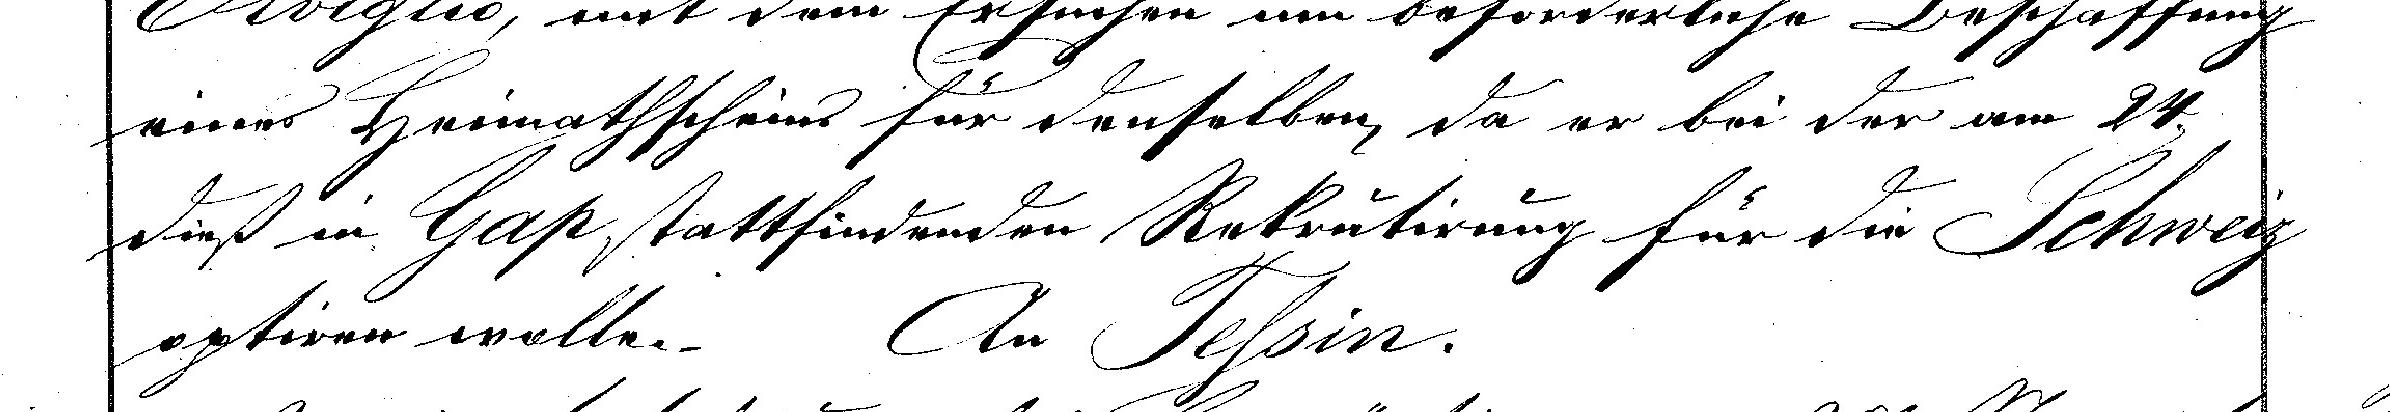 Aviglio, mit dem Ersuchen um beförderliche Beschaffung
eines Heimathscheins für denselben, da er bei der am 24.
dieß in Gap stattfindenden Rekrutirung für die Schweiz
optiren wolle. – An Tessin.